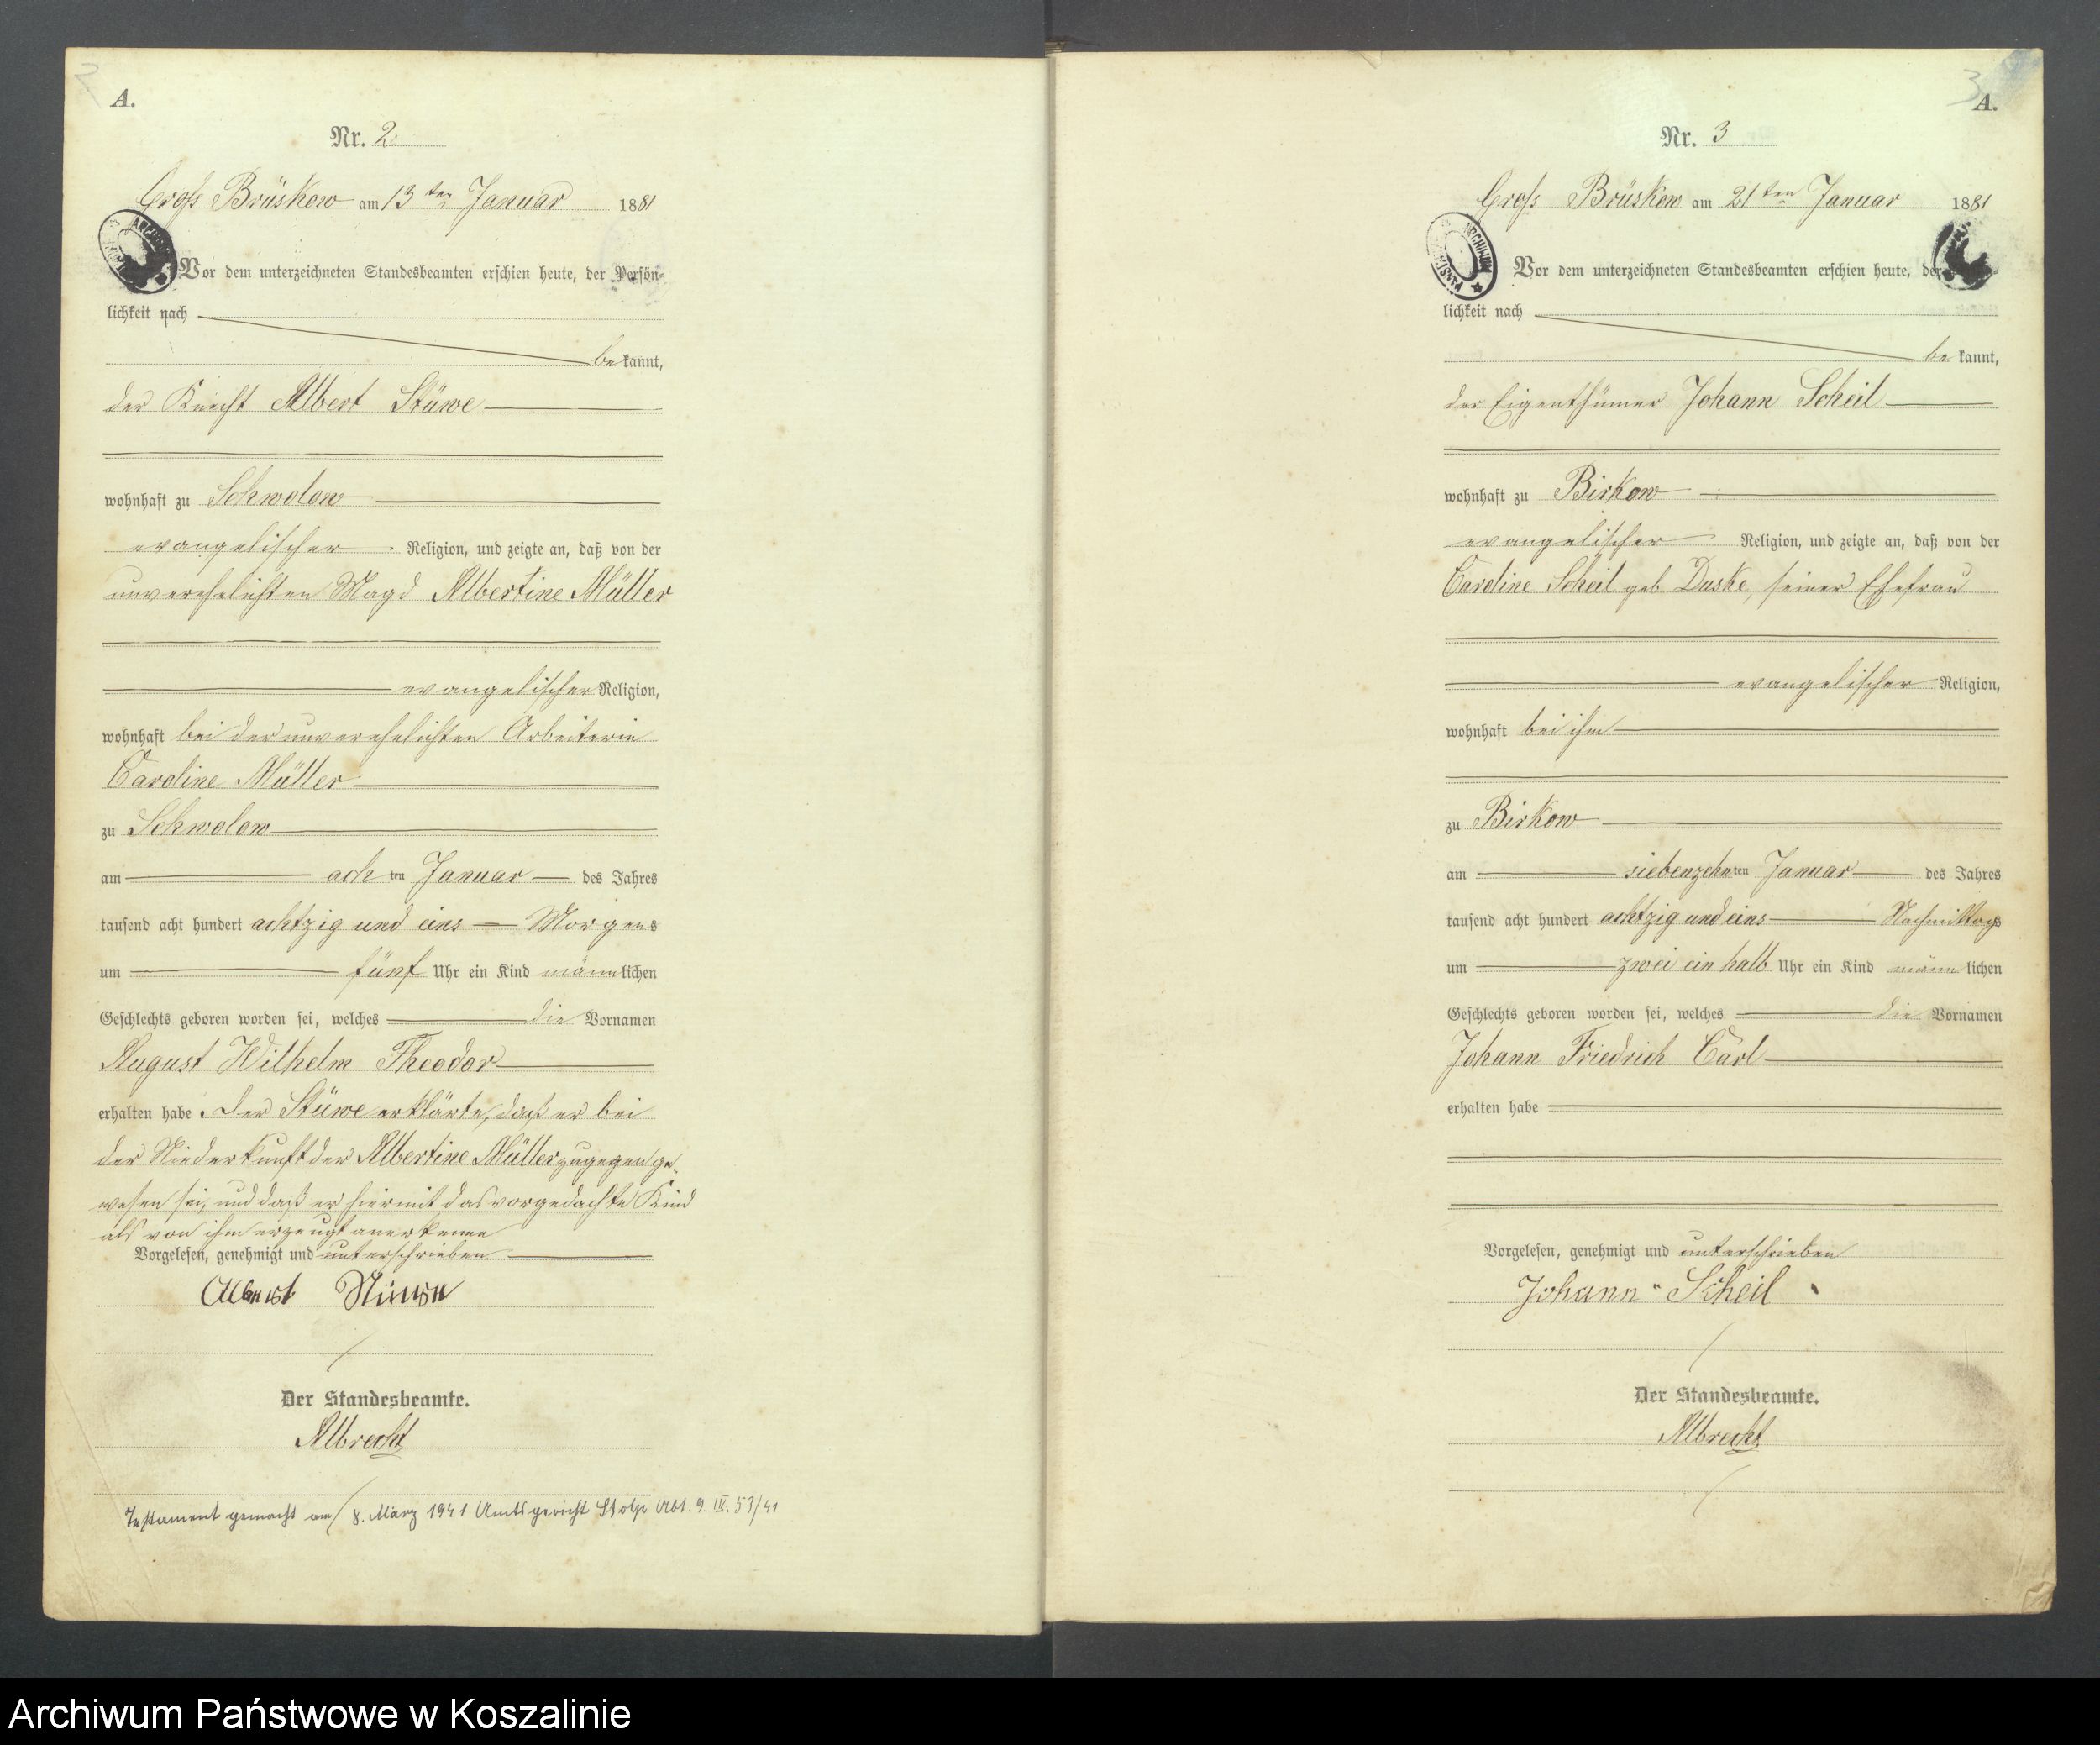 2
A.
Nr. 2.
Groß Brüskow am 13ten Januar 1881
Vor dem unterzeichneten Standesbeamten erschien heute, der Persön-
lichkeit nach
bekannt,
der Knecht Albert Stüwe
wohnhaft zu Schwolow
evangelischer Religion, und zeigte an, daß von der
unverehelichten Magd Albertine Müller
evangelischer Religion,
wohnhaft bei der unverehelichten Arbeiterin
Caroline Müller
zu Schwolow
am achten Januar des Jahres
tausend acht hundert achtzig und eins Morgens
um fünf Uhr ein Kind männlichen
Geschlechts geboren worden sei, welches die Vornamen
August Wilhelm Theodor
erhalten habe. Der Stüwe erklärte, daß er bei
der Niederkunft der Albertine Müller zugegen ge-
wesen sei, und daß er hiermit das vorgedachte Kind
als von ihm erzeugt anerkenne
Vorgelesen, genehmigt und unterschrieben
Albert Stüwe
Der Standesbeamte.
Albrecht
Testament gemacht am 8. März 1941 Amtsgericht Stolp Abt. 9. IV. 53/41
3
A.
Nr. 3
Groß Brüskow am 21ten Januar 1881
Vor dem unterzeichneten Standesbeamten erschien heute, der
lichkeit nach
bekannt,
der Eigenthümer Johann Scheil
wohnhaft zu Birkow
evangelischer Religion, und zeigte an, daß von der
Caroline Scheil geb Duske, seiner Ehefrau
evangelischer Religion,
wohnhaft bei ihm
zu Birkow
am siebenzehnten Januar des Jahres
tausend acht hundert achtzig und eins Nachmittags
um zwei ein halb Uhr ein Kind männlichen
Geschlechts geboren worden sei, welches die Vornamen
Johann Friedrich Carl
erhalten habe
Vorgelesen, genehmigt und unterschrieben
Johann Scheil
Der Standesbeamte.
Albrecht
Archiwum Państwowe w Koszalinie